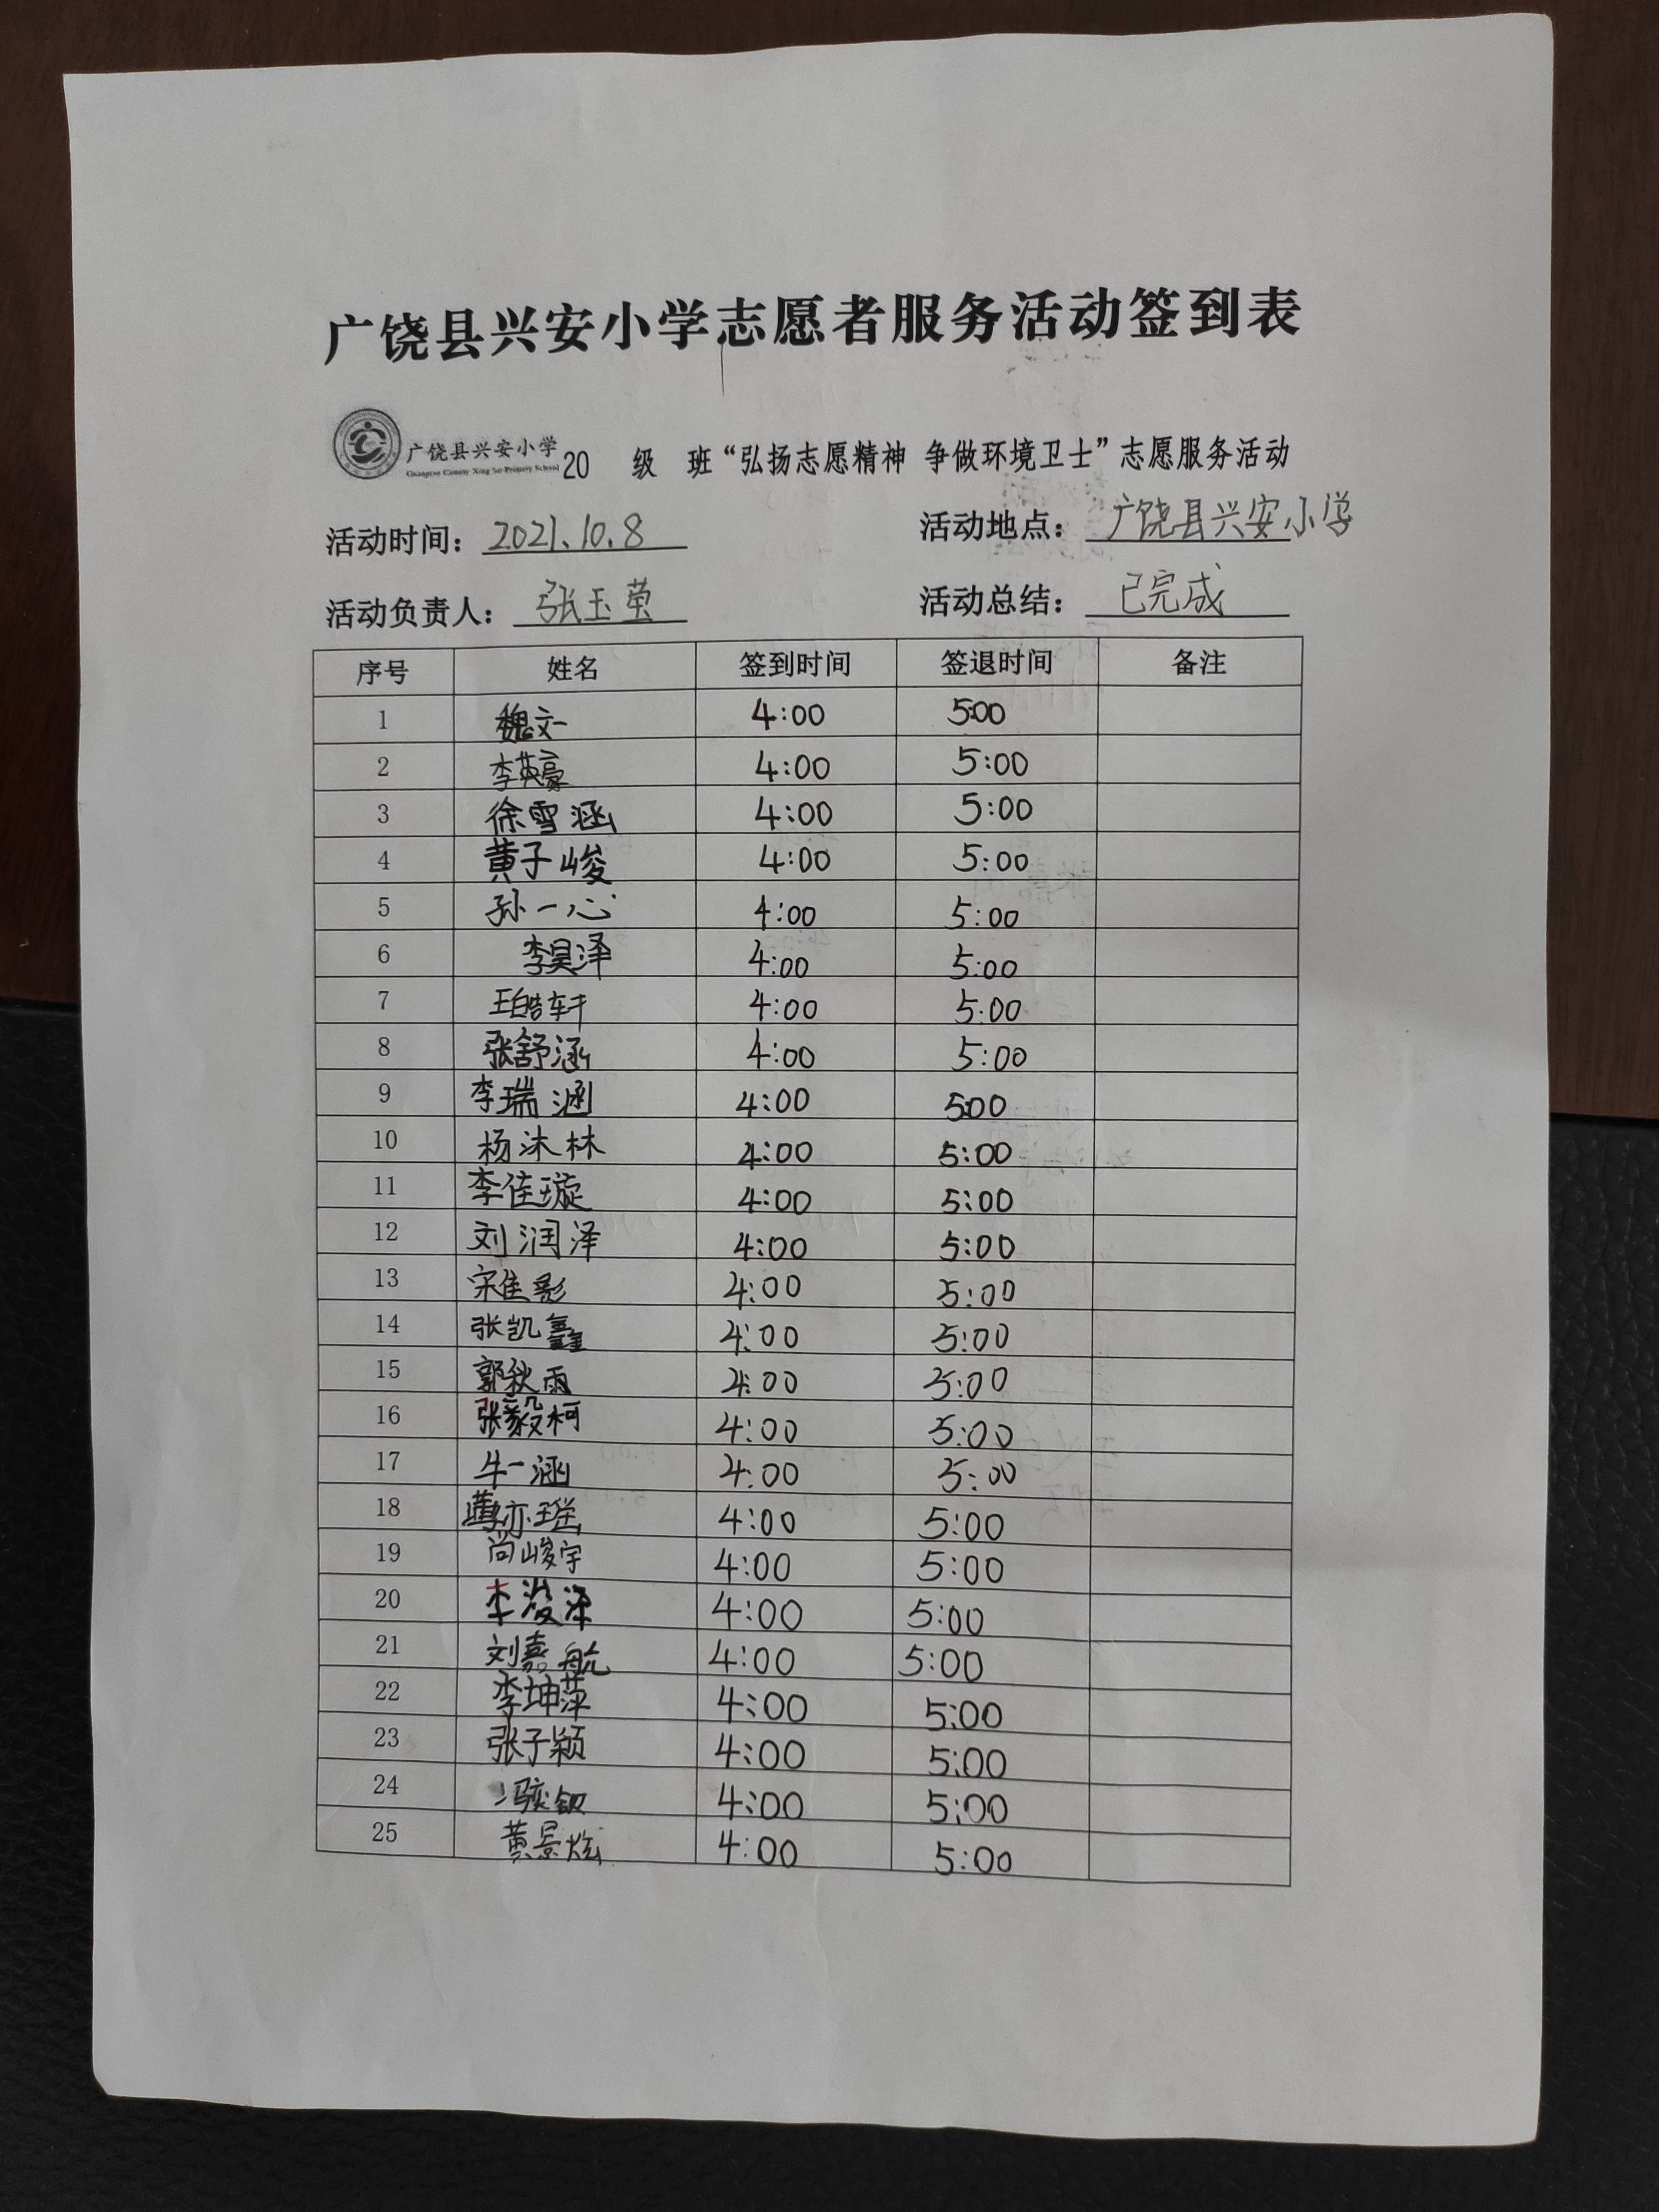 广饶县兴安小学志愿者服务活动签到表
广饶县兴安小学 20 级 班“弘扬志愿精神 争做环境卫士”志愿服务活动
Guangrao County Xing'an Primary School
活动时间：2021.10.8 活动地点：广饶县兴安小学
活动负责人：张玉莹 活动总结：已完成
序号 姓名 签到时间 签退时间 备注
1 魏文一 4:00 5:00
2 李英豪 4:00 5:00
3 徐雪涵 4:00 5:00
4 黄子峻 4:00 5:00
5 孙一心 4:00 5:00
6 李昊泽 4:00 5:00
7 王皓轩 4:00 5:00
8 张舒涵 4:00 5:00
9 李瑞涵 4:00 5:00
10 杨沐林 4:00 5:00
11 李佳璇 4:00 5:00
12 刘润泽 4:00 5:00
13 宋佳影 4:00 5:00
14 张凯鑫 4:00 5:00
15 郭秋雨 4:00 5:00
16 张毅柯 4:00 5:00
17 牛一涵 4:00 5:00
18 4:00 5:00
19 尚峻宇 4:00 5:00
20 李浚泽 4:00 5:00
21 刘嘉航 4:00 5:00
22 李坤萍 4:00 5:00
23 张子颖 4:00 5:00
24 4:00 5:00
25 黄景炫 4:00 5:00